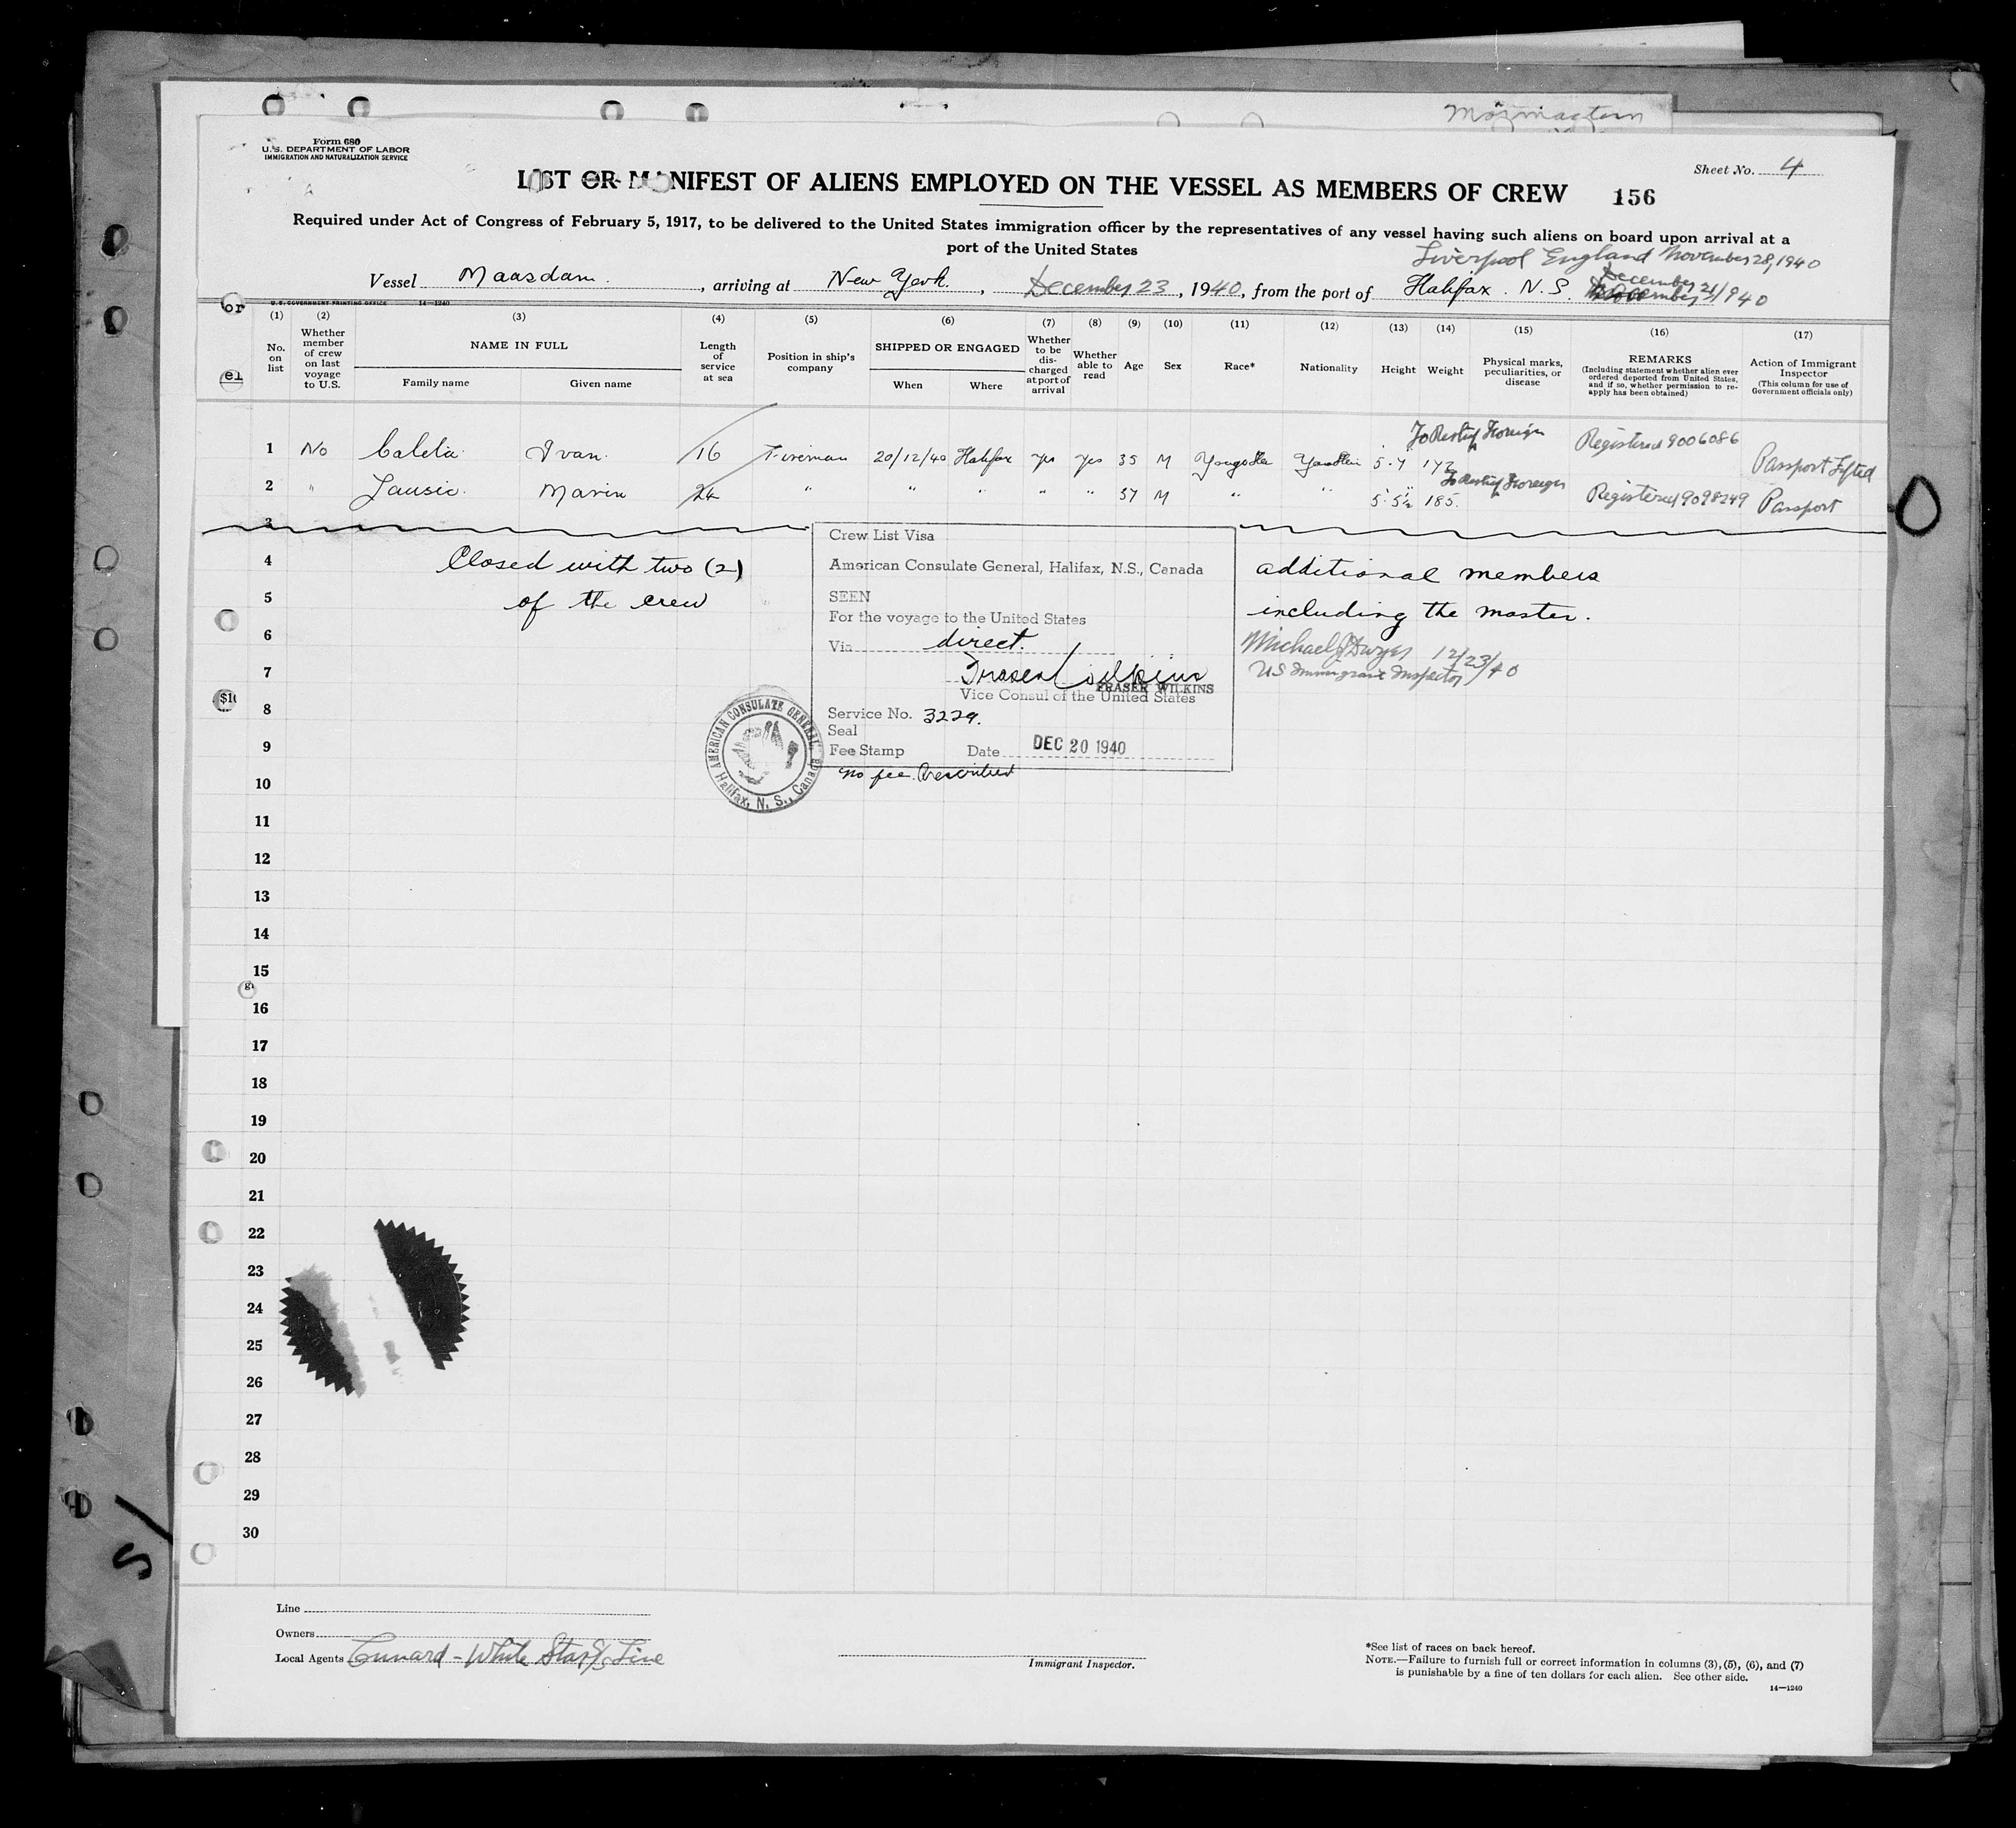 Form 680
U.S. DEPARTMENT OF LABOR
IMMIGRATION AND NATURALIZATION SERVICE
Sheet No. 4
LIST OR MANIFEST OF ALIENS EMPLOYED ON THE VESSEL AS MEMBERS OF CREW 156
Required under Act of Congress of February 5, 1917, to be delivered to the United States immigration officer by the representatives of any vessel having such aliens on board upon arrival at a
port of the United States
Liverpool England November 28, 1940
Vessel Maasdam, arriving at New York, December 23, 1940, from the port of Halifax. N.S. December 21/1940
or
U.S. GOVERNMENT PRINTING OFFICE 14—1240
(1) (2) (3) (4) (5) (6) (7) (8) (9) (10) (11) (12) (13) (14) (15) (16) (17)
No. on list
Whether member of crew on last voyage to U.S.
NAME IN FULL
Family name
Given name
Length of service at sea
Position in ship's company
SHIPPED OR ENGAGED
When
Where
Whether to be discharged at port of arrival
Whether able to read
Age
Sex
Race*
Nationality
Height
Weight
Physical marks, peculiarities, or disease
REMARKS
(Including statement whether alien ever ordered deported from United States, and if so, whether permission to reapply has been obtained)
Action of Immigrant Inspector
(This column for use of Government officials only)
el
To Reship Foreign
1 No Calela Ivan. 16 Fireman 20/12/40 Halifax yes yes 35 M 5.7 172 Registered 9006086 Passport Lifted
To Reship Foreign
2 " Lausic. Marin 24 " " " " " 37 M " " 5.5½ 185. Registered 9098249 Passport
3
4 Closed with two (2) additional members
5 of the crew including the master.
Michael J Dwyer 12/23/40
US Immigrant Inspector
Crew List Visa
American Consulate General, Halifax, N.S., Canada
SEEN
For the voyage to the United States
Via direct.
Fraser Wilkins
FRASER WILKINS
Vice Consul of the United States
Service No. 3229.
Seal
Fee Stamp Date DEC 20 1940
No fee Prescribed
AMERICAN CONSULATE GENERAL
Halifax, N. S., Canada
6
7
8
9
10
11
12
13
14
15
16
17
18
19
20
21
22
23
24
25
26
27
28
29
30
Line
Owners
Local Agents Cunard - White Star S/S Line
Immigrant Inspector.
*See list of races on back hereof.
NOTE.—Failure to furnish full or correct information in columns (3), (5), (6), and (7)
is punishable by a fine of ten dollars for each alien. See other side.
14—1240